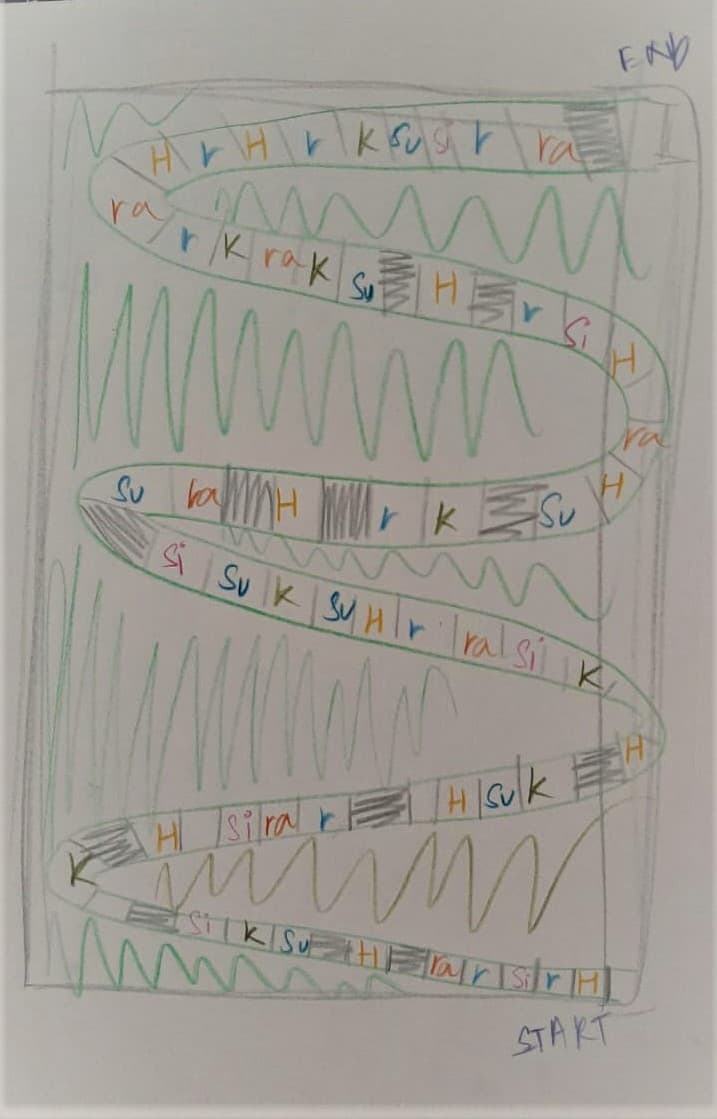 END
H r H r K Su Si r ra
ra r K ra K Su H r Si H
ra
Su ra H r K Su H
Si Su K Su H r ra Si K
H Si ra r H Su K H
K Si K Su H ra r Si r H
START